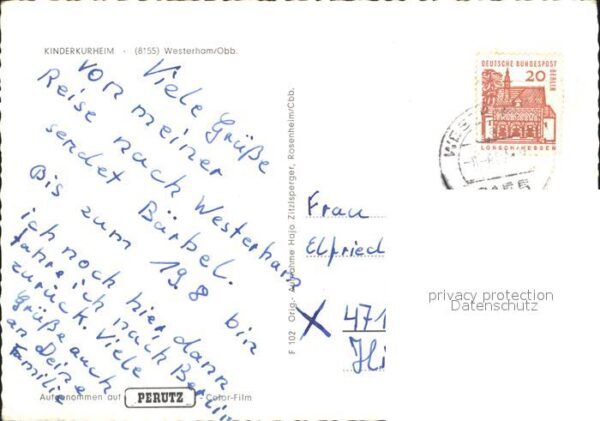 KINDERKURHEIM - (8155) Westerham/Obb.
Viele Grüße
von meiner
Reise nach Westerham
sendet Bärbel.
Bis zum 19.8 bin
ich noch hier, dann
fahre ich nach Berlin
zurück. Viele
Grüße auch
an Deine
Familie
Aufgenommen auf PERUTZ - Color-Film
F 102 Orig.-Aufnahme Hajo Zitzlsperger, Rosenheim/Obb.
DEUTSCHE BUNDESPOST
BERLIN
20
LORSCH/HESSEN
Frau
Elfried
X 471
privacy protection
Datenschutz